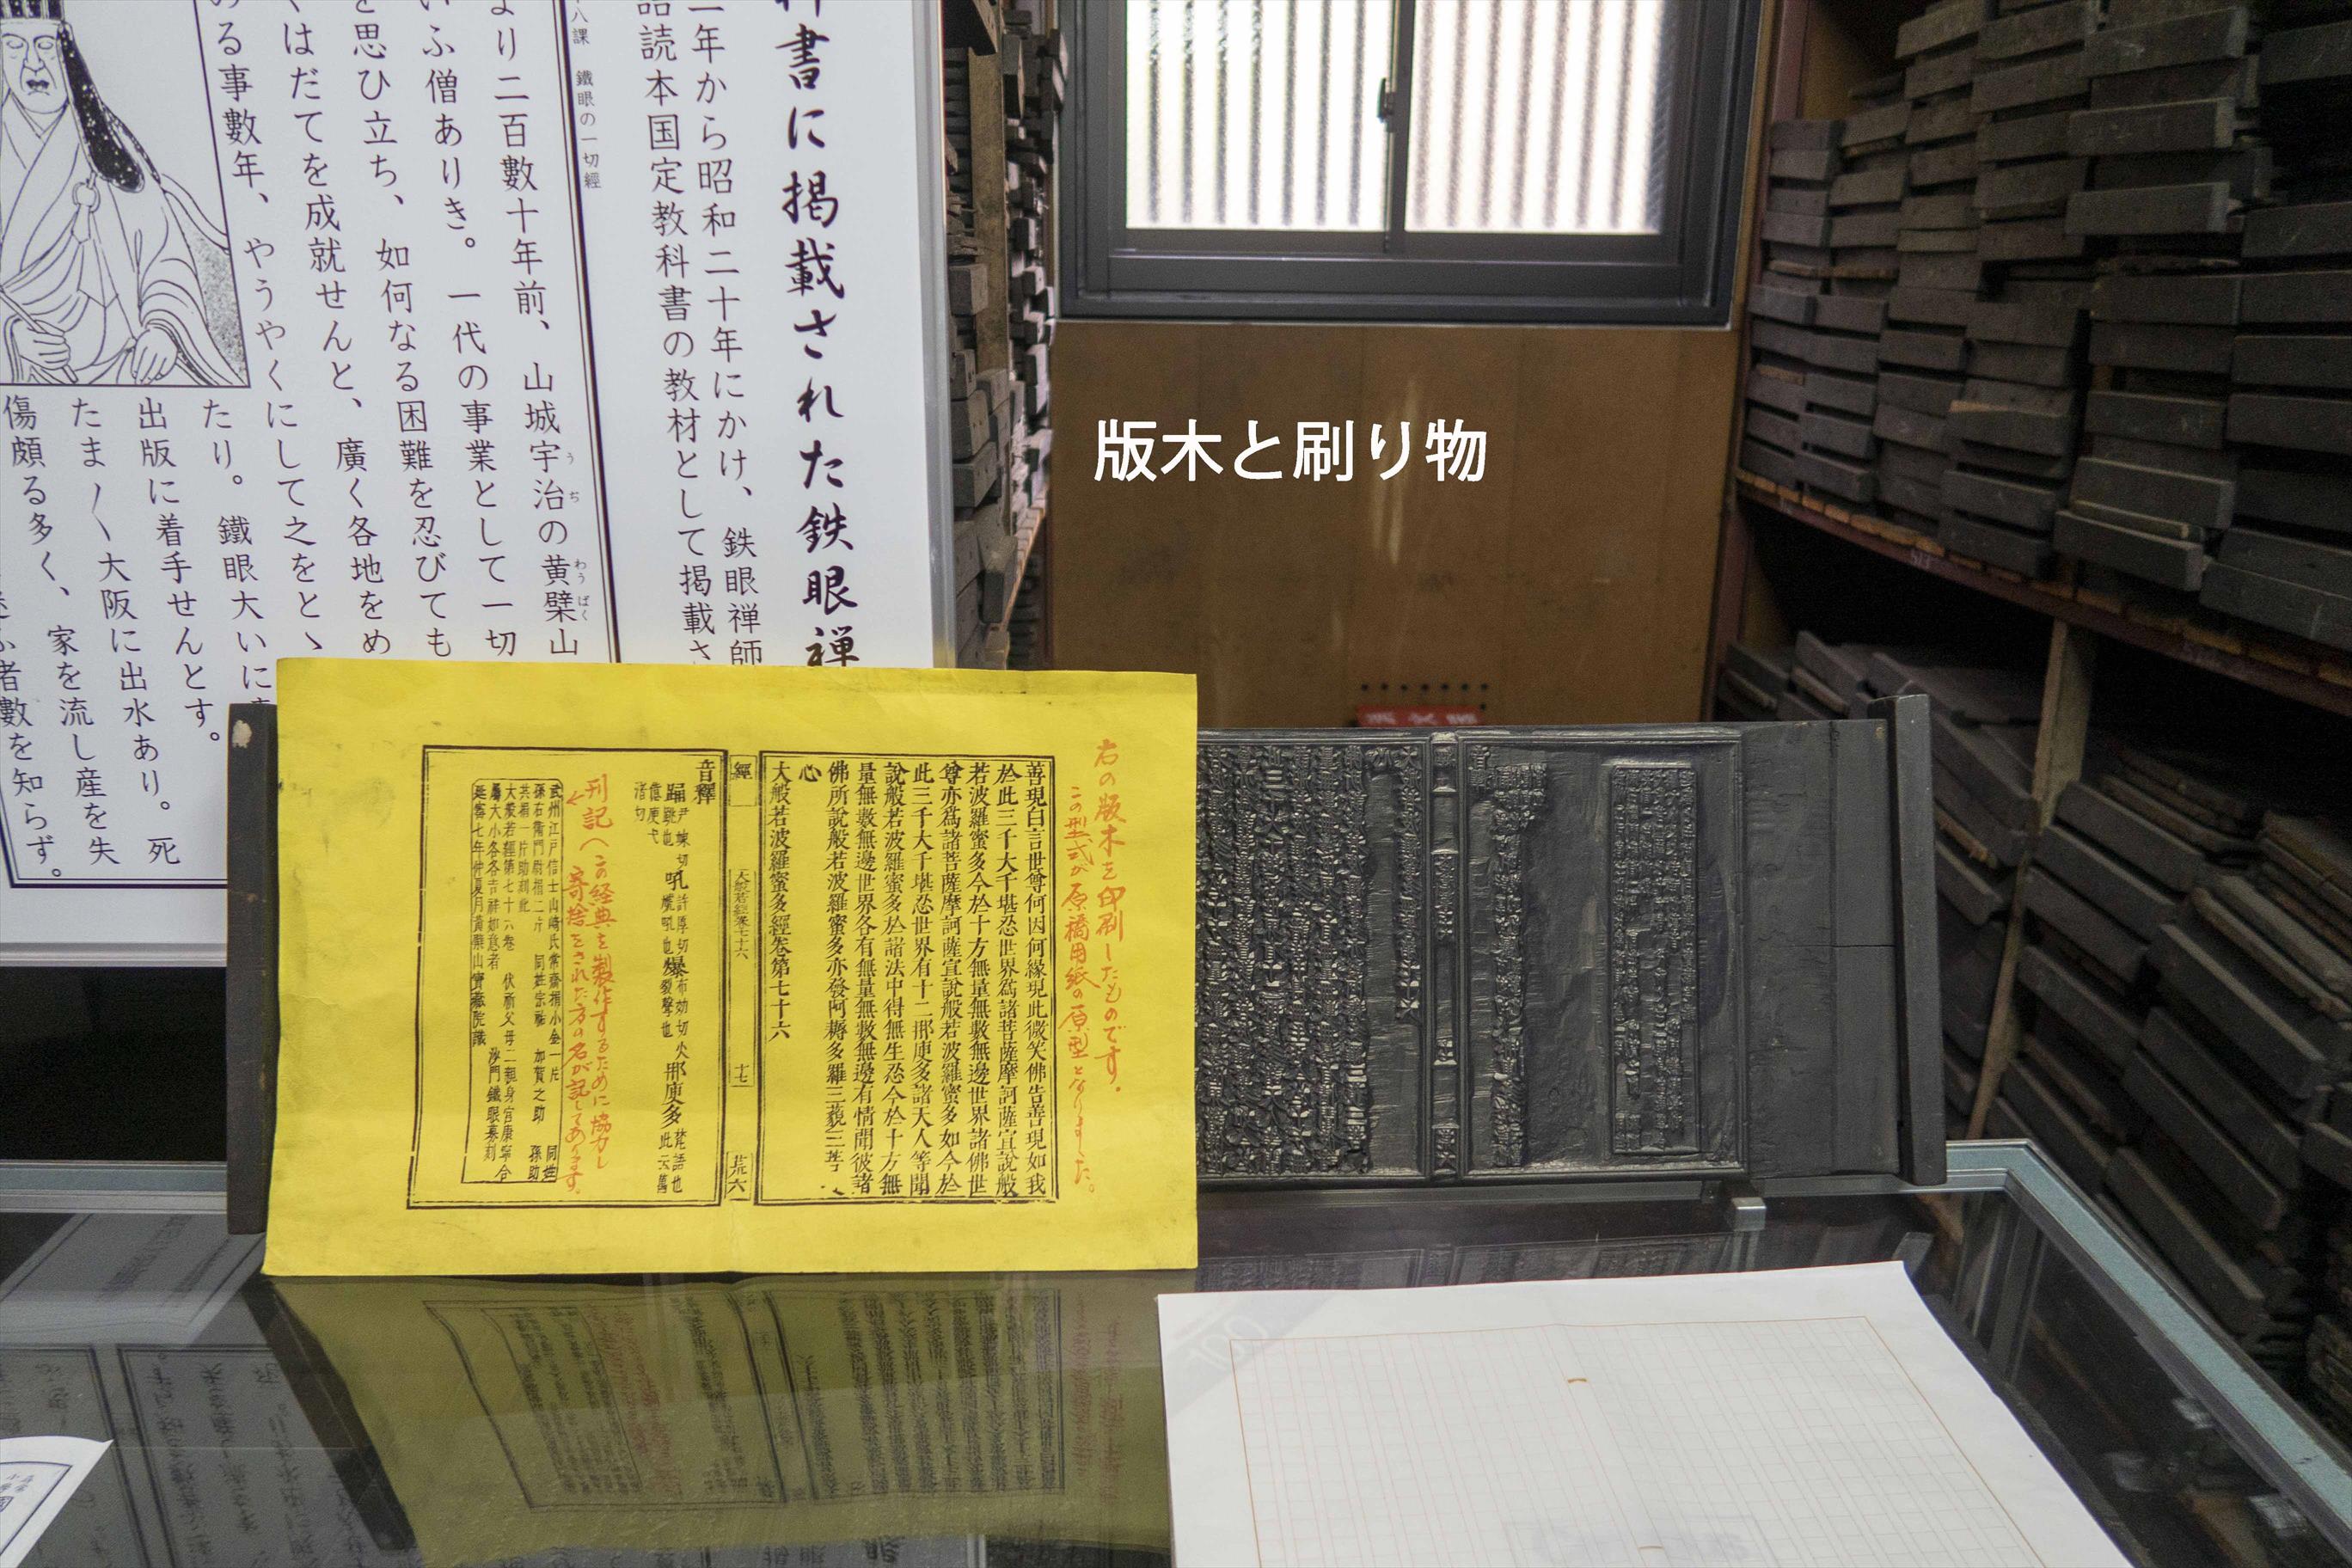 版木と刷り物
科書に掲載された鉄眼禅
二年から昭和二十年にかけ、鉄眼禅師
語読本国定教科書の教材として掲載さ
十八課 鐵眼の一切經
より二百數十年前、山城宇治の黄檗山
いふ僧ありき。一代の事業として一切
を思ひ立ち、如何なる困難を忍びても
くはだてを成就せんと、廣く各地をめ
める事數年、やうやくにして之をとゝ
たり。鐵眼大いに
出版に着手せんとす。
たま〳〵大阪に出水あり。死
傷頗る多く、家を流し産を失
者數を知らず。
右の版木を印刷したものです。
この型式が原稿用紙の原型となりました。
善現白言世尊何因何緣現此微笑佛告善現如我
於此三千大千堪忍世界爲諸菩薩摩訶薩宣說般
若波羅蜜多今於十方無量無數無邊世界諸佛世
尊亦爲諸菩薩摩訶薩宣說般若波羅蜜多如今於
此三千大千堪忍世界有十二那庾多諸天人等聞
說般若波羅蜜多於諸法中得無生忍今於十方無
量無數無邊世界各有無量無數無邊有情聞彼諸
佛所說般若波羅蜜多亦發阿耨多羅三藐三菩
心
大般若波羅蜜多經卷第七十六
經
大般若經卷七十六
十七
荒六
音釋
刊記(この経典を製作するために協力し
寄捨をされた方の名が記してあります。
武州江戸信士山崎氏常齋捐小金一片
大般若經第七十六卷
延寶七年仲夏月黄檗山寶藏院識